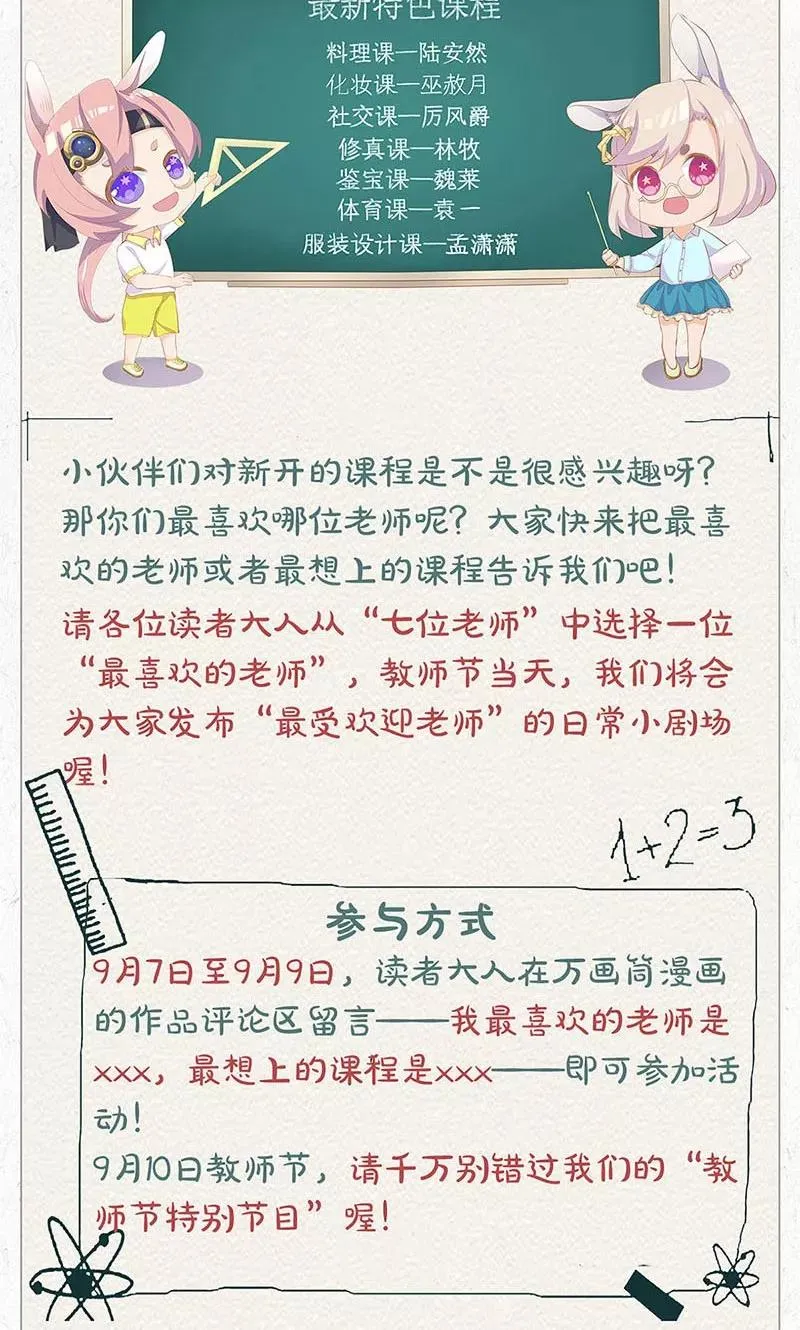 最新特色课程
料理课—陆安然
化妆课—巫赦月
社交课—厉风爵
修真课—林牧
鉴宝课—魏莱
体育课—袁一
服装设计课—孟潇潇
小伙伴们对新开的课程是不是很感兴趣呀?
那你们最喜欢哪位老师呢? 大家快来把最喜
欢的老师或者最想上的课程告诉我们吧!
请各位读者大人从“七位老师”中选择一位
“最喜欢的老师”, 教师节当天, 我们将会
为大家发布“最受欢迎老师”的日常小剧场
喔!
1+2=3
参与方式
9月7日至9月9日, 读者大人在万画筒漫画
的作品评论区留言——我最喜欢的老师是
xxx, 最想上的课程是xxx——即可参加活
动!
9月10日教师节, 请千万别错过我们的“教
师节特别节目”喔!